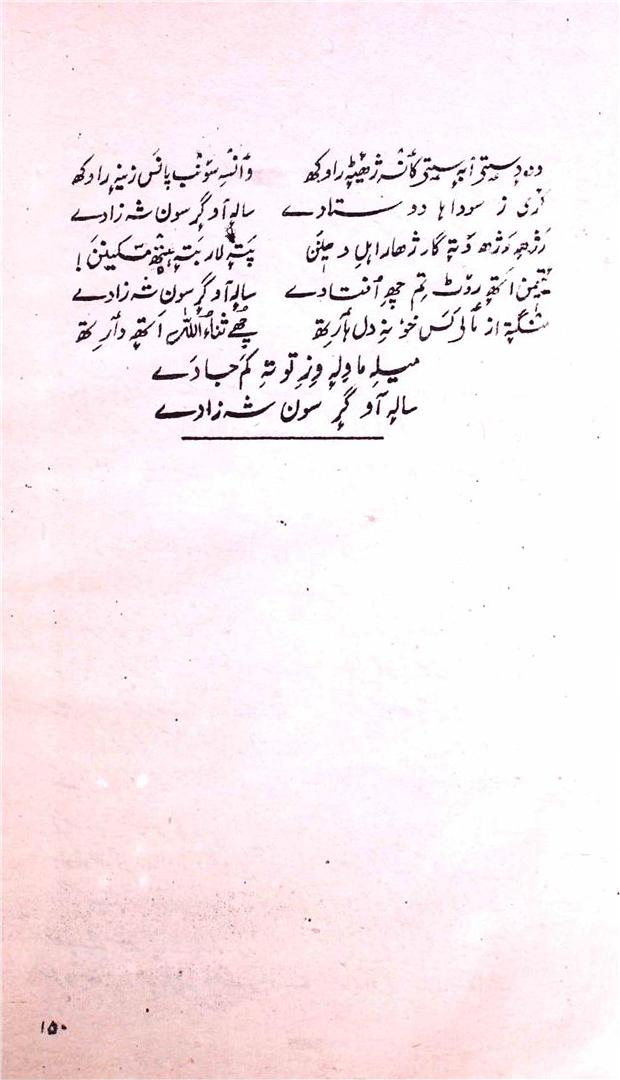 دہ دِستی اَپرستی کانٛسہ ژھیٹہِ راوکھ وَانسہِ سوٗنٛب پانَس زینہٕ راوکھ
کَری ز سودا ہا دو ستادے سالہٕ آو گرٕ سون شہ زادے
رَژھِ وَژھ دَتہٕ گار ژھار اہلِ دِینَن پَتہٕ لار بَتہٕ ہیتھ مسکینَن!
یتیمن اَتھہٕ روٗٹ تِم چھِ اُفتادے سالہٕ آو گرٕ سون شہ زادے
از مٲلی کَس خوٚنہِ دِل ہٲرِتھ چُھے ثناءُاللہ اَتھہٕ دٲرِتھ
میلہِ ماولہٕ وِزِ توتہِ کم جادے
سالہٕ آو گرٕ سون شہ زادے
۱۵۰